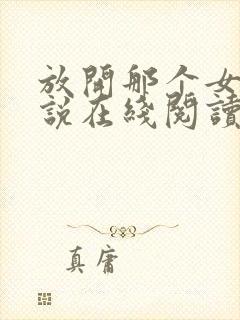 放開那个女
説在綫閱讀
真庸